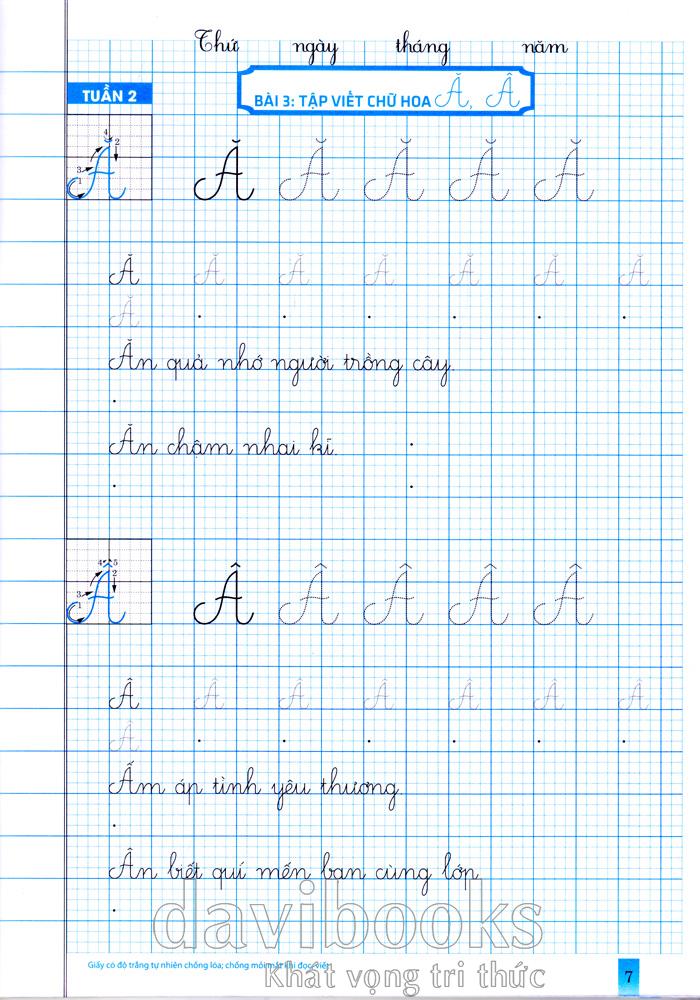 Thứ ngày tháng năm
TUẦN 2
BÀI 3: TẬP VIẾT CHỮ HOA Ă, Â
4 2 3 1 Ă Ă Ă Ă Ă Ă
Ă Ă Ă Ă Ă Ă Ă
Ă
Ăn quả nhớ người trồng cây.
Ăn chậm nhai kĩ.
4 5 2 3 1 Â Â Â Â Â Â
Â Â Â Â Â Â Â
Â
Ấm áp tình yêu thương.
Ân biết quí mến bạn cùng lớp.
davibooks
Giấy có độ trắng tự nhiên chống lóa; chống mỏi mắt khi đọc, viết
Khát vọng tri thức
7